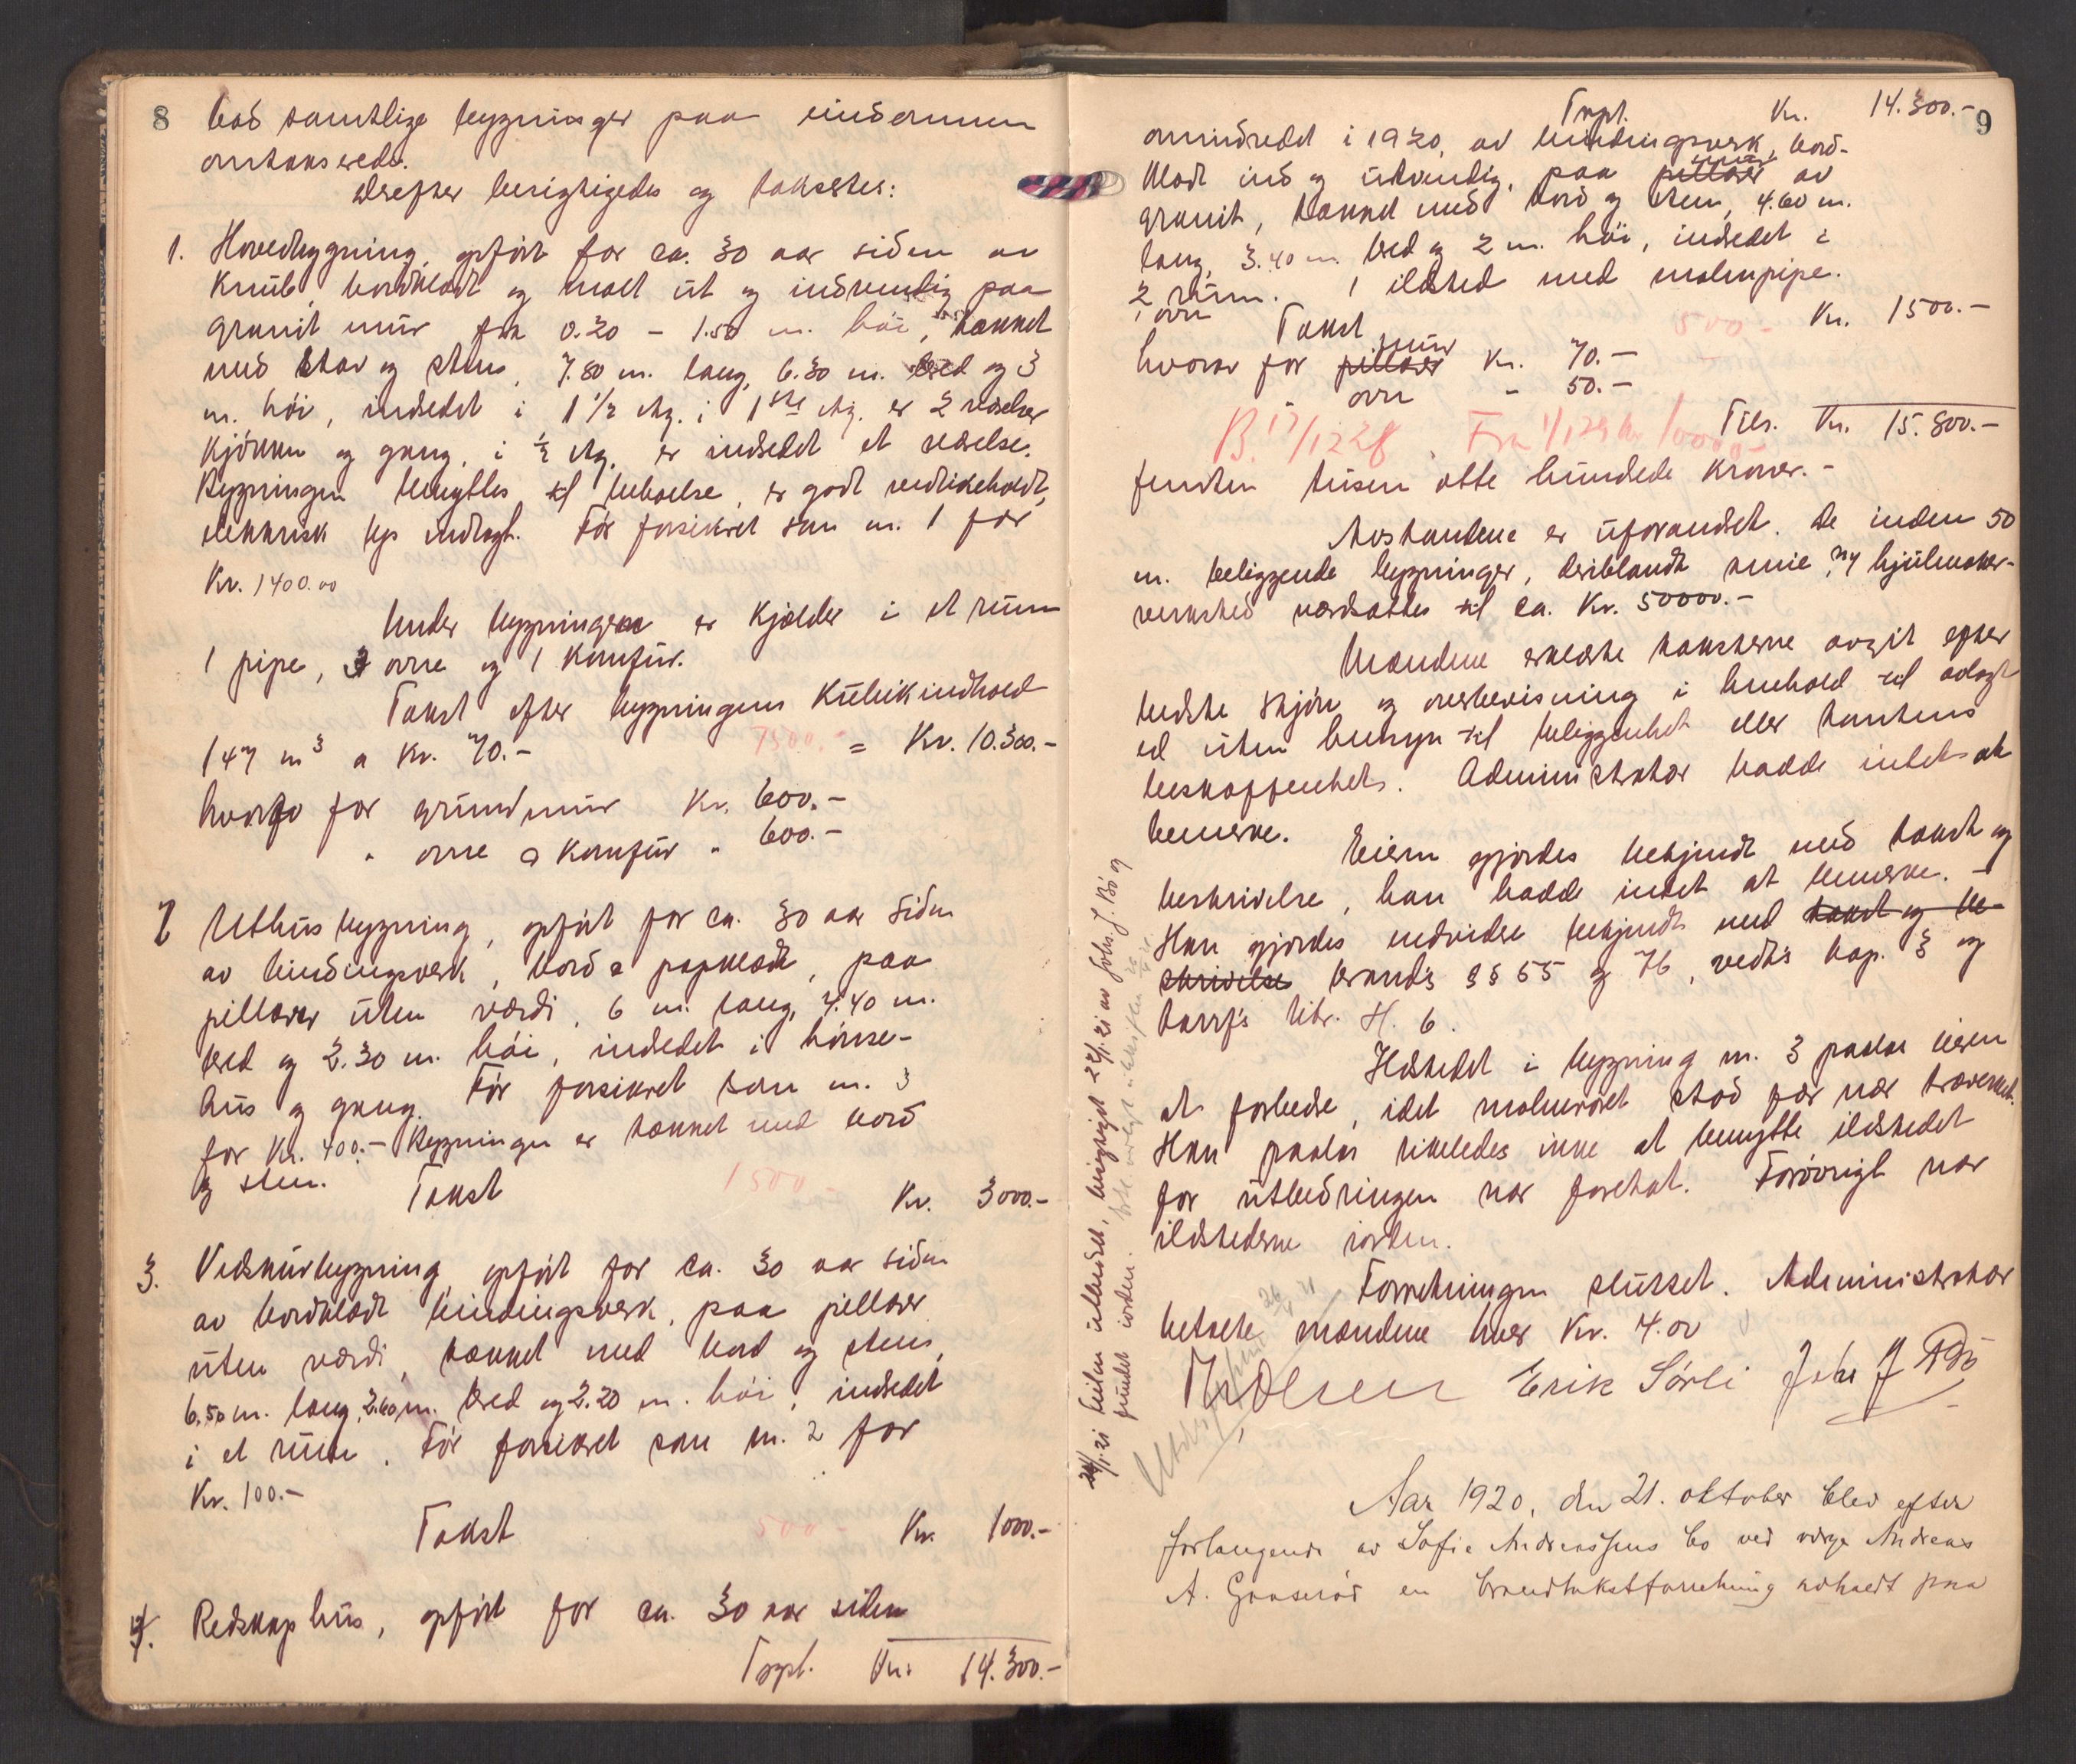 8
bad samtlige bygninger paa eiendommen
omtakserede.
Derefter besigtigedes og takseres:
1. Hovedbygning, opført for ca. 30 aar siden av
Knub, bordklædt og malt ut og indvendig paa
granit mur fra 0.20 - 1.50 m. høi, tækket
med bord og stens, 7.80 m. lang, 6.30 m. bred og 3
m. høi, indredet i 1 1/2 etg. i 1ste etg. er 2 værelser
kjøkken og gang, i 1/2 etg. er indredet et værelse.
Bygningen benyttes til beboelse, er godt vedlikeholdt,
elektrisk lys indlagt. Før forsikret som nr. 1 for
Kr. 1400.00
Under bygningen er kjælder i et rum
1 pipe, 3 ovne og 1 komfur.
Takst efter bygningens kubikindhold
147 m3 a Kr. 70.- 7500.- = Kr. 10.300.-
hvorav for grundmur Kr. 600.-
" ovne o komfur " 600.-
2 Uthusbygning, opført for ca. 30 aar siden
av bindingsverk, bord o papklædt, paa
pillarer uten værdi, 6 m. lang, 4.40 m.
bred og 2.30 m. høi, indredet i hønse-
hus og gang. Før forsikret som nr. 3
for Kr. 400.- Bygningen er tækket med bord
og sten.
Takst 1500.- Kr. 3000.-
3. Vedskurbygning opført for ca. 30 aar siden
av bordklædt bindingsverk, paa pillarer
uten værdi, tækket med bord og stens,
6.50 m. lang, 2.60 m. bred og 2.20 m. høi, indredet
i et rum. Før forsikret som nr. 2 for
Kr. 100.-
Takst 500.- Kr. 1000.-
4. Redskaphus, opført for ca. 30 aar siden
Trpt. Kr. 14.300.-
9
Trpt. Kr. 14.300.-
omindredet i 1920, av bindingsverk, bord-
klædt ind og utvendig, paa pillarer mur av
granit, tækket med bord og sten, 4.60 m.
lang, 3.40 m. bred og 2 m. høi, indredet i
2 rum. 1 ildsted med malmpipe.
1 ovn
Takst 500.- Kr. 1500.-
hvorav for pillarer mur Kr. 70.-
" ovn " 50.-
Tils. Kr. 15.800.-
B. 17/12 28 Fra 1/1 29 kr 1000.-
femten tusen otte hundrede kroner.-
Avstandene er uforandret. De inden 50
m. beliggende bygninger, deriblandt smie, ny hjulmaker-
verksted værdsattes til ca. Kr. 50000.-
Mændene erklærte taksterne avgit efter
bedste skjøn og overbevisning i henhold til avlagt
ed uten hensyn til beliggenhet eller tomtens
beskaffenhet. Administrator hadde intet at
bemerke.
Eieren gjordes bekjendt med takst og
beskrivelse, han hadde intet at bemerke. -
Han gjordes endvidere bekjendt med takst og be-
skrivelse brandls §§ 55 og 76, vedt's kap. 3 og
tarrf's litr. H. 6.
Ildstedet i bygning nr. 3 paala eieren
at forbedre, idet malmrøret stod for nær træverket.
Han paalas likeledes ikke at benytte ildstedet
før utbedringen var foretat. Forøvrigt var
ildstederne iorden.
Forretningen sluttet. Administrator
betalte mændene hver Kr. 4.00
Erik Sørli Johs J Bö
Aar 1920, den 21. oktober blev efter
forlangende av Sofie Andreassens bo ved verge Andreas
A. Gaaserød en brandtakstforretning avholdt paa
fundet iorden.